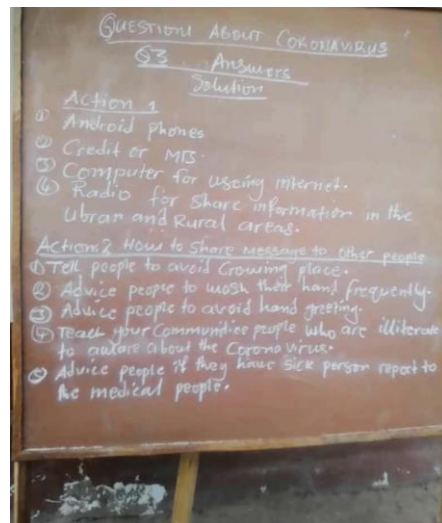 QUESTION ABOUT CORONAVIRUS
Q3 Answers
Solution
Action 1
① Android phones
② Credit or MB.
③ Computer for useing internet.
④ Radio for share information in the
Ubran and Rural areas.
Action:2 How to share message to other people
① Tell people to avoid Crowing place.
② Advice people to wash their hand frequently.
③ Advice people to avoid hand greeting.
④ Teach your Communities people who are illiterate
to aware about the Coronavirus.
⑤ Advice people if they have sick person report to
the medical people.